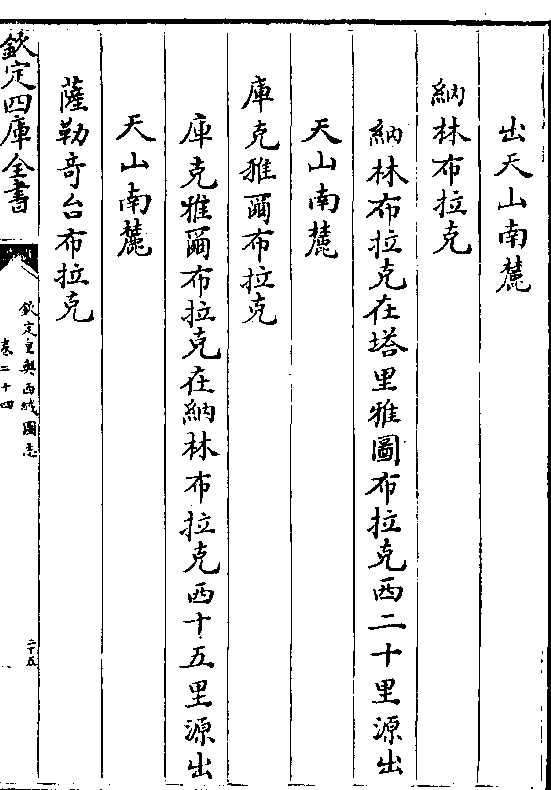 出天山南麓
納林布拉克
納林布拉克在塔里雅圖布拉克西二十里源出
天山南麓
庫克雅爾布拉克
庫克雅爾布拉克在納林布拉克西十五里源出
天山南麓
薩勒奇台布拉克
欽定四庫全書
欽定皇輿西域圖志
卷二十四
二十五